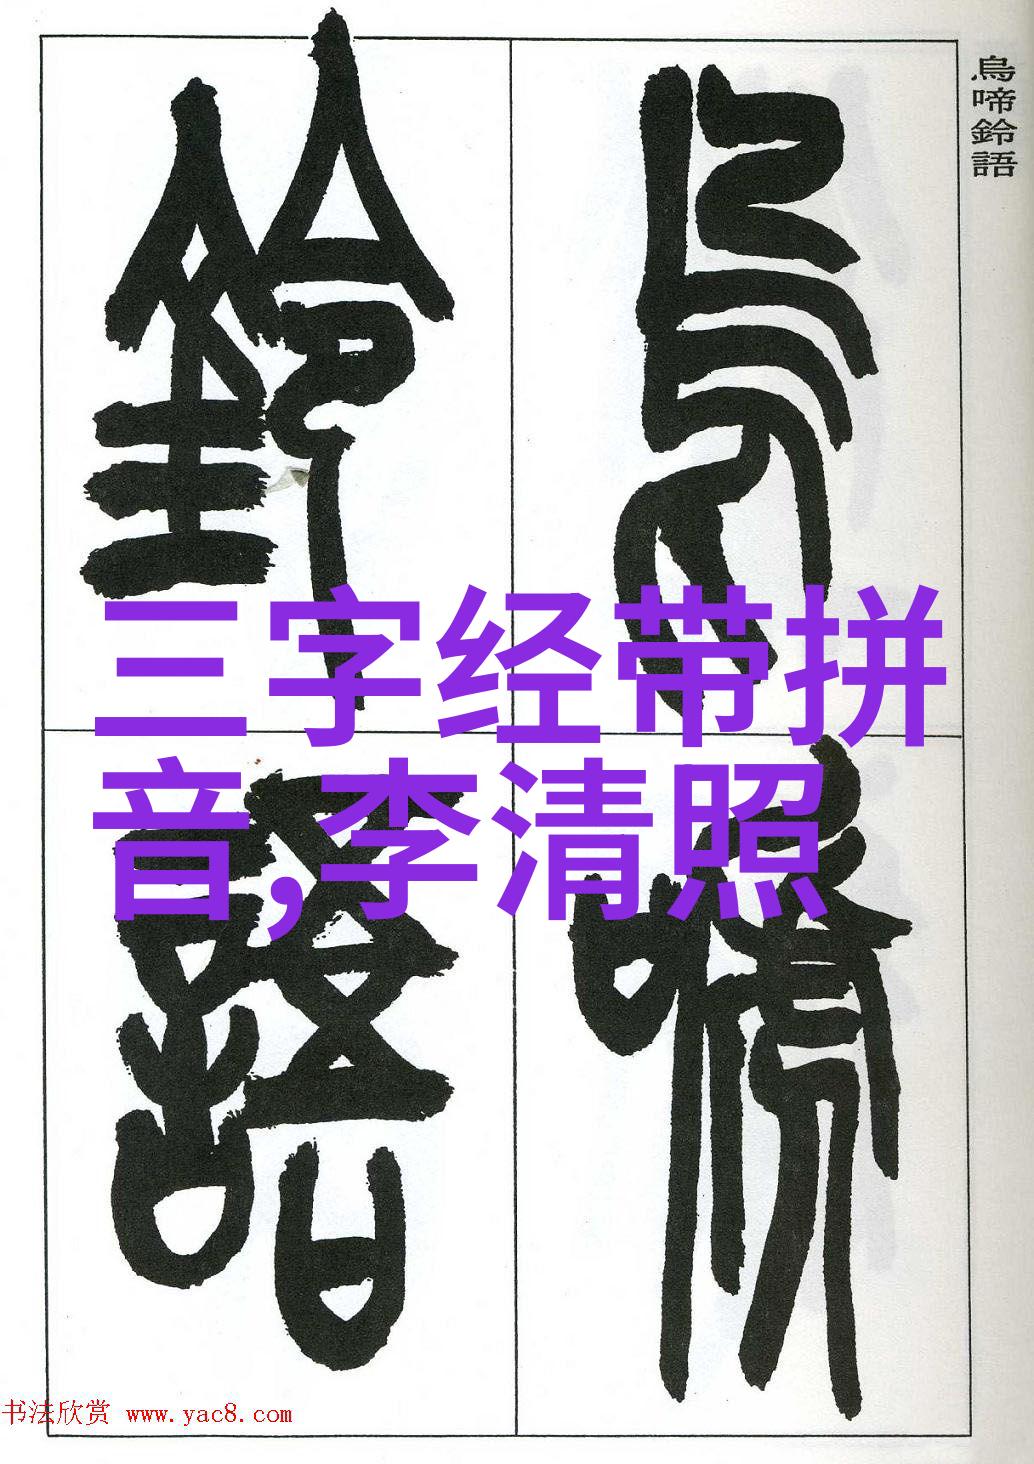 鳥啼鈴語
鳥啼
鈴語
三字经带拼
音,李清照
书法欣赏 www.yac8.com